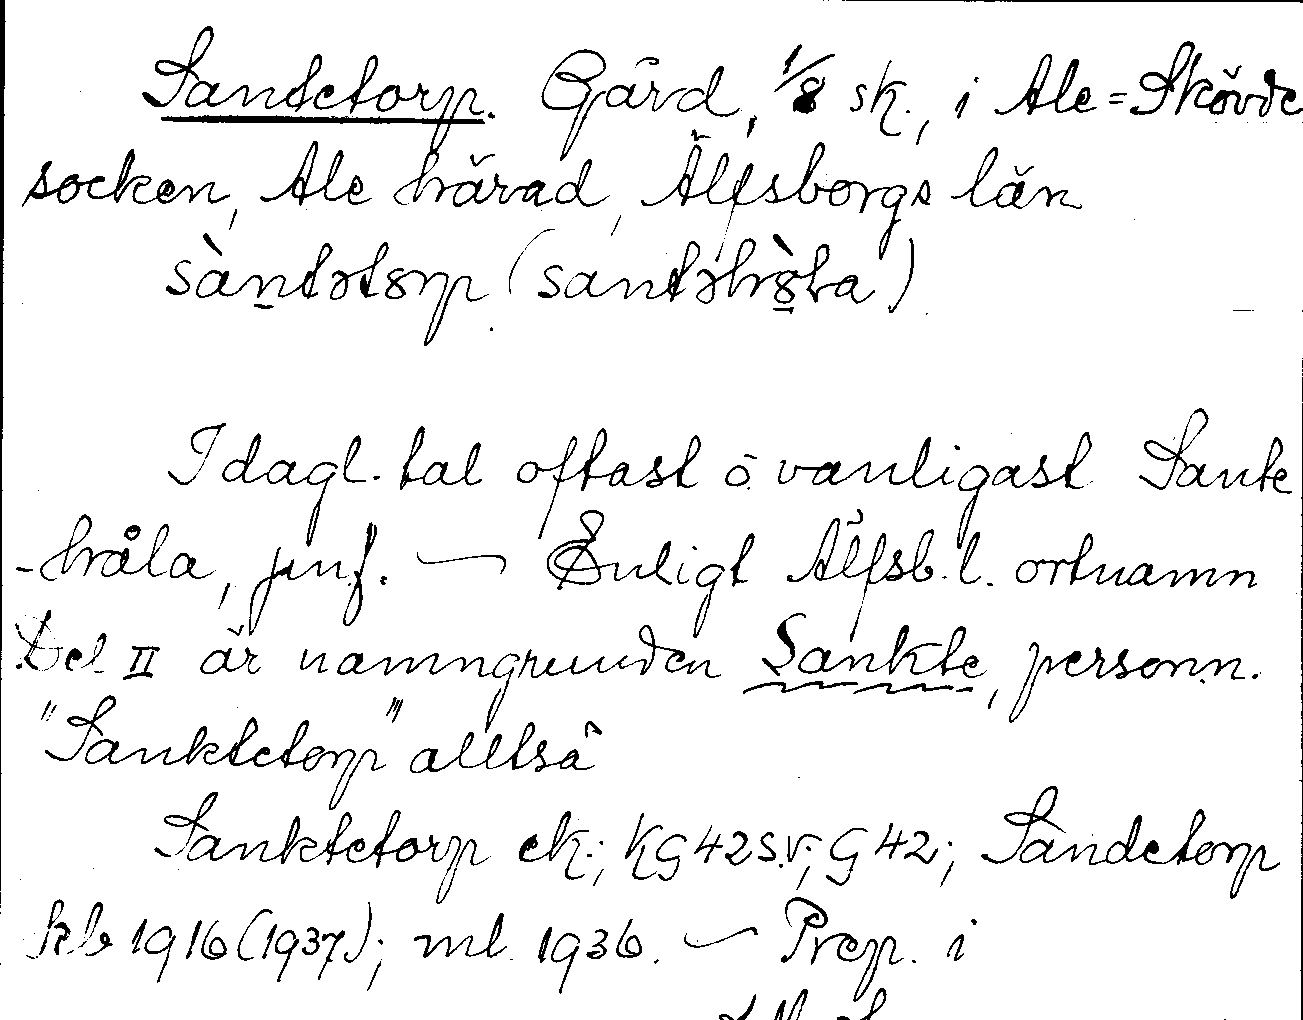 Santetorp. Gård, 1/8 sk., i Ale=Skövde
socken, Ale härad, Älfsborgs län
sàntətɔrp (santəhɔ̀la)
I dagl. tal oftast o. vanligast Sante
-håla, jmf. — Enligt Älfsb. l. ortnamn
Del II är namngrunden Sankte, personn.
"Sanktetorp" alltså
Sanktetorp ek.; KG42S.V; G42; Sandetorp
kb 1916 (1937); ml. 1936. — Prep. i